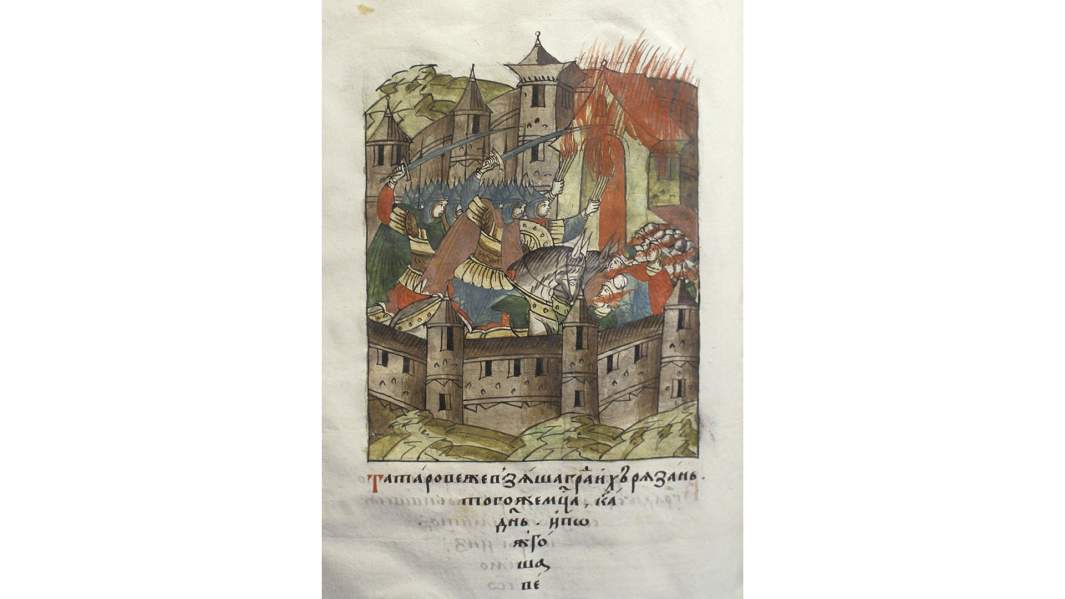 Татаровежевзѧшагра́дихърѧзань .
тогожемц҃а , к҃а
дн҃ь . ипѡ
жго́
ша
ве́